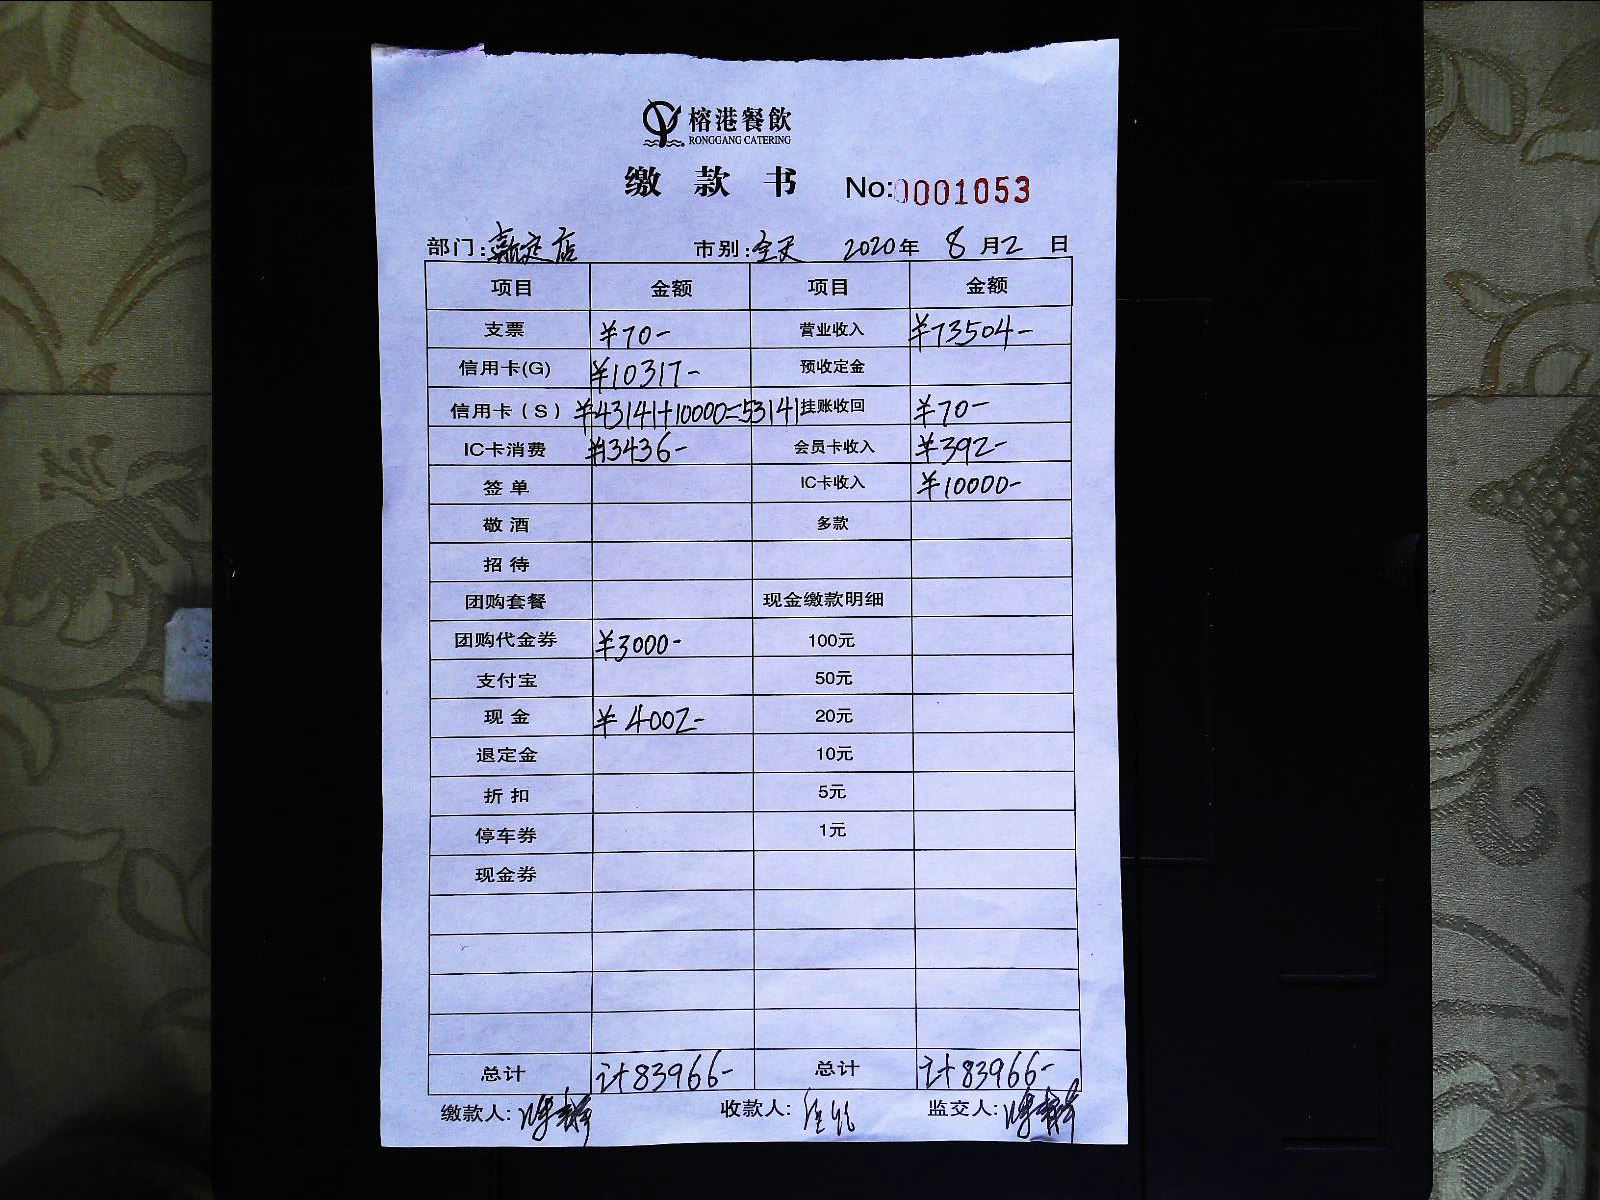 榕港餐飲
RONGGANG CATERING
缴 款 书 No:0001053
部门: 店 市别:全天 2020年 8 月 2 日
项目 金额 项目 金额
支票 ¥70- 营业收入 ¥73504-
信用卡(G) ¥10317- 预收定金
信用卡（S） ¥43141+10000=53141 挂账收回 ¥70-
IC卡消费 ¥13436- 会员卡收入 ¥392-
签单 IC卡收入 ¥10000-
敬酒 多款
招待
团购套餐 现金缴款明细
团购代金券 ¥3000- 100元
支付宝 50元
现金 ¥4002- 20元
退定金 10元
折扣 5元
停车券 1元
现金券
总计 计83966- 总计 计83966-
缴款人: 收款人: 监交人: